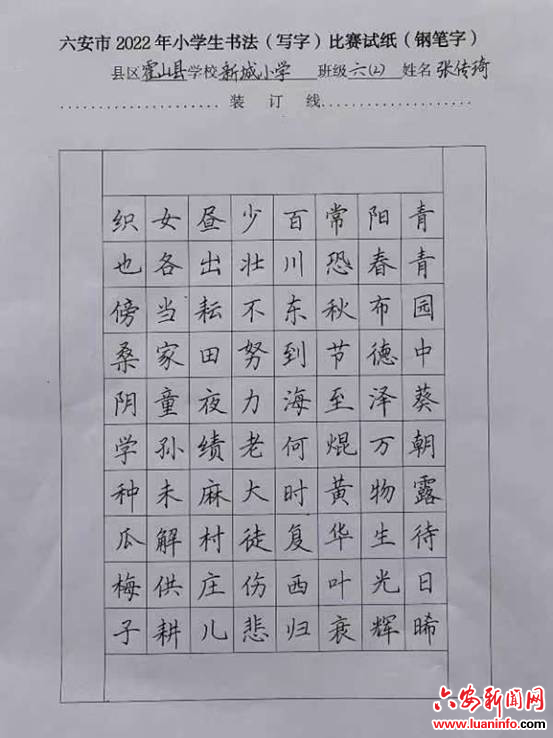 六安市2022年小学生书法（写字）比赛试纸（钢笔字）
县区霍山县学校新城小学 班级六(2) 姓名张传琦
装 订 线
青青园中葵朝露待日晞
阳春布德泽万物生光辉
常恐秋节至焜黄华叶衰
百川东到海何时复西归
少壮不努力老大徒伤悲
昼出耘田夜绩麻村庄儿
女各当家童孙未解供耕
织也傍桑阴学种瓜梅子
六安新闻网
www.luaninfo.com